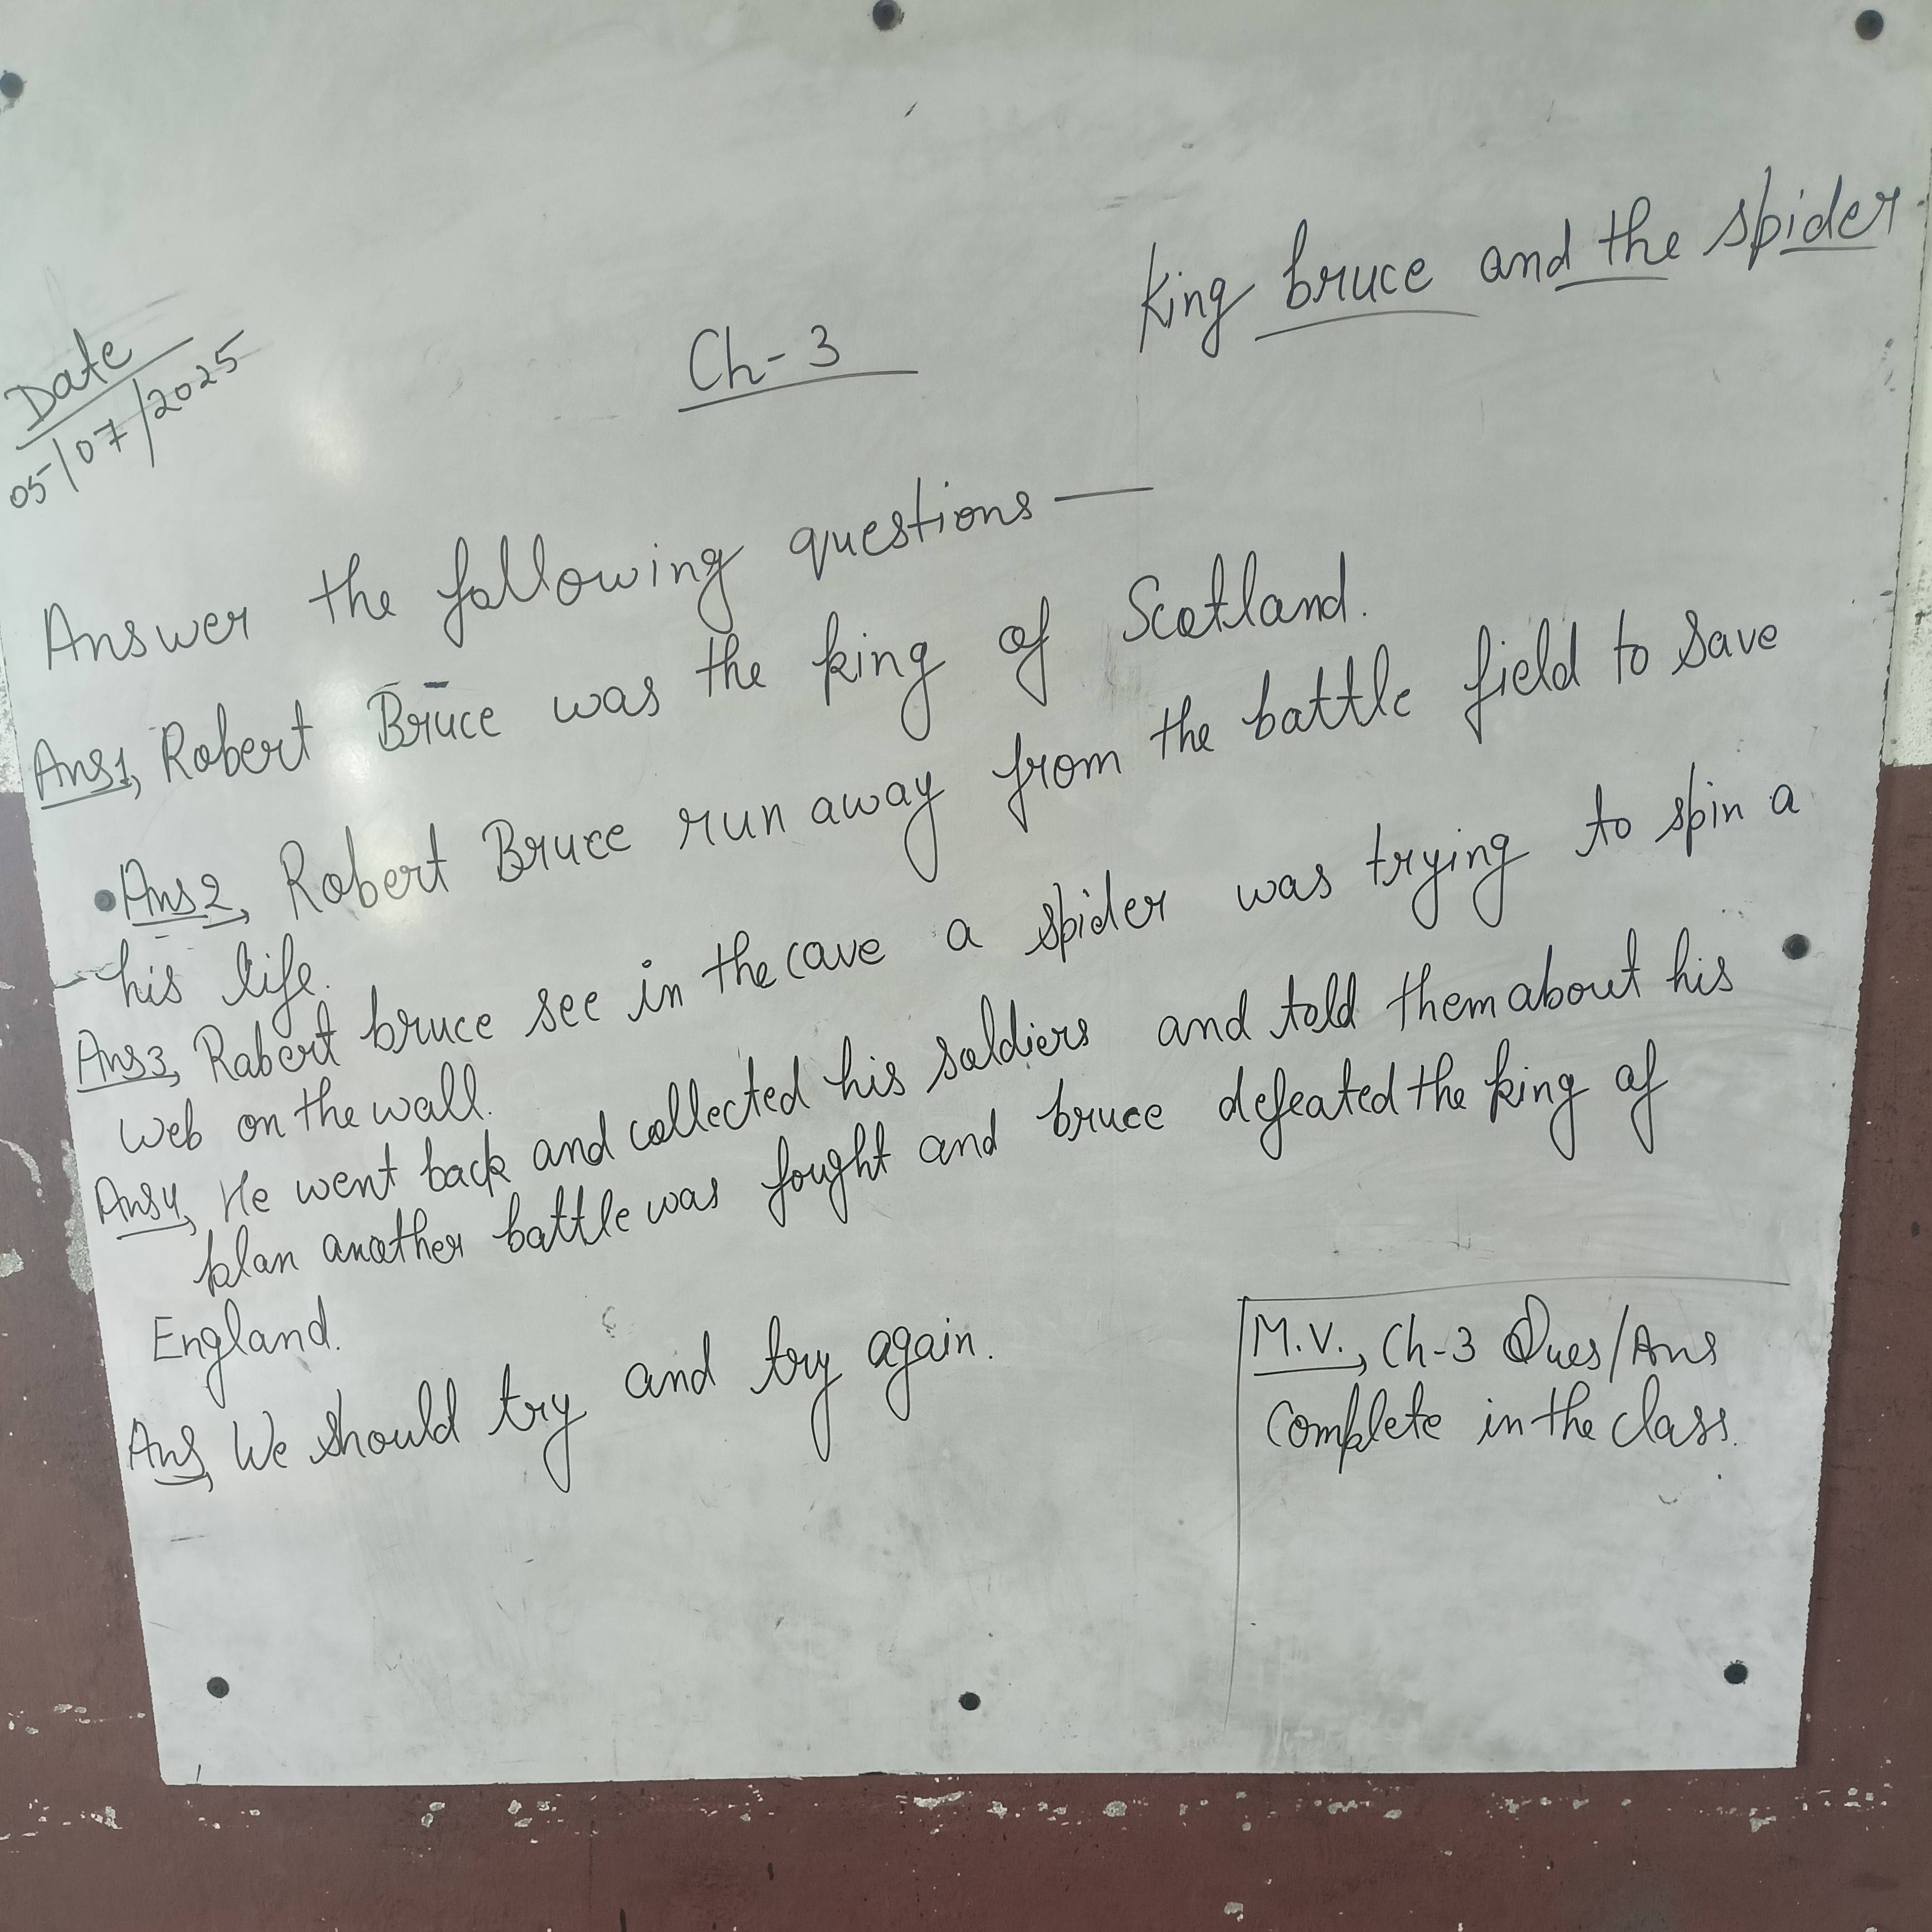 Date
05/07/2025
Ch-3
King bruce and the spider
Answer the following questions —
Ans1, Robert Bruce was the king of Scotland.
Ans2, Robert Bruce run away from the battle field to save
his life.
Ans3, Rabert bruce see in the cave a spider was trying to spin a
web on the wall.
Ans4, He went back and collected his soldiers and told them about his
plan another battle was fought and bruce defeated the king of
England.
Ans, We should try and try again.
M.V., Ch-3 Ques/Ans
Complete in the class.